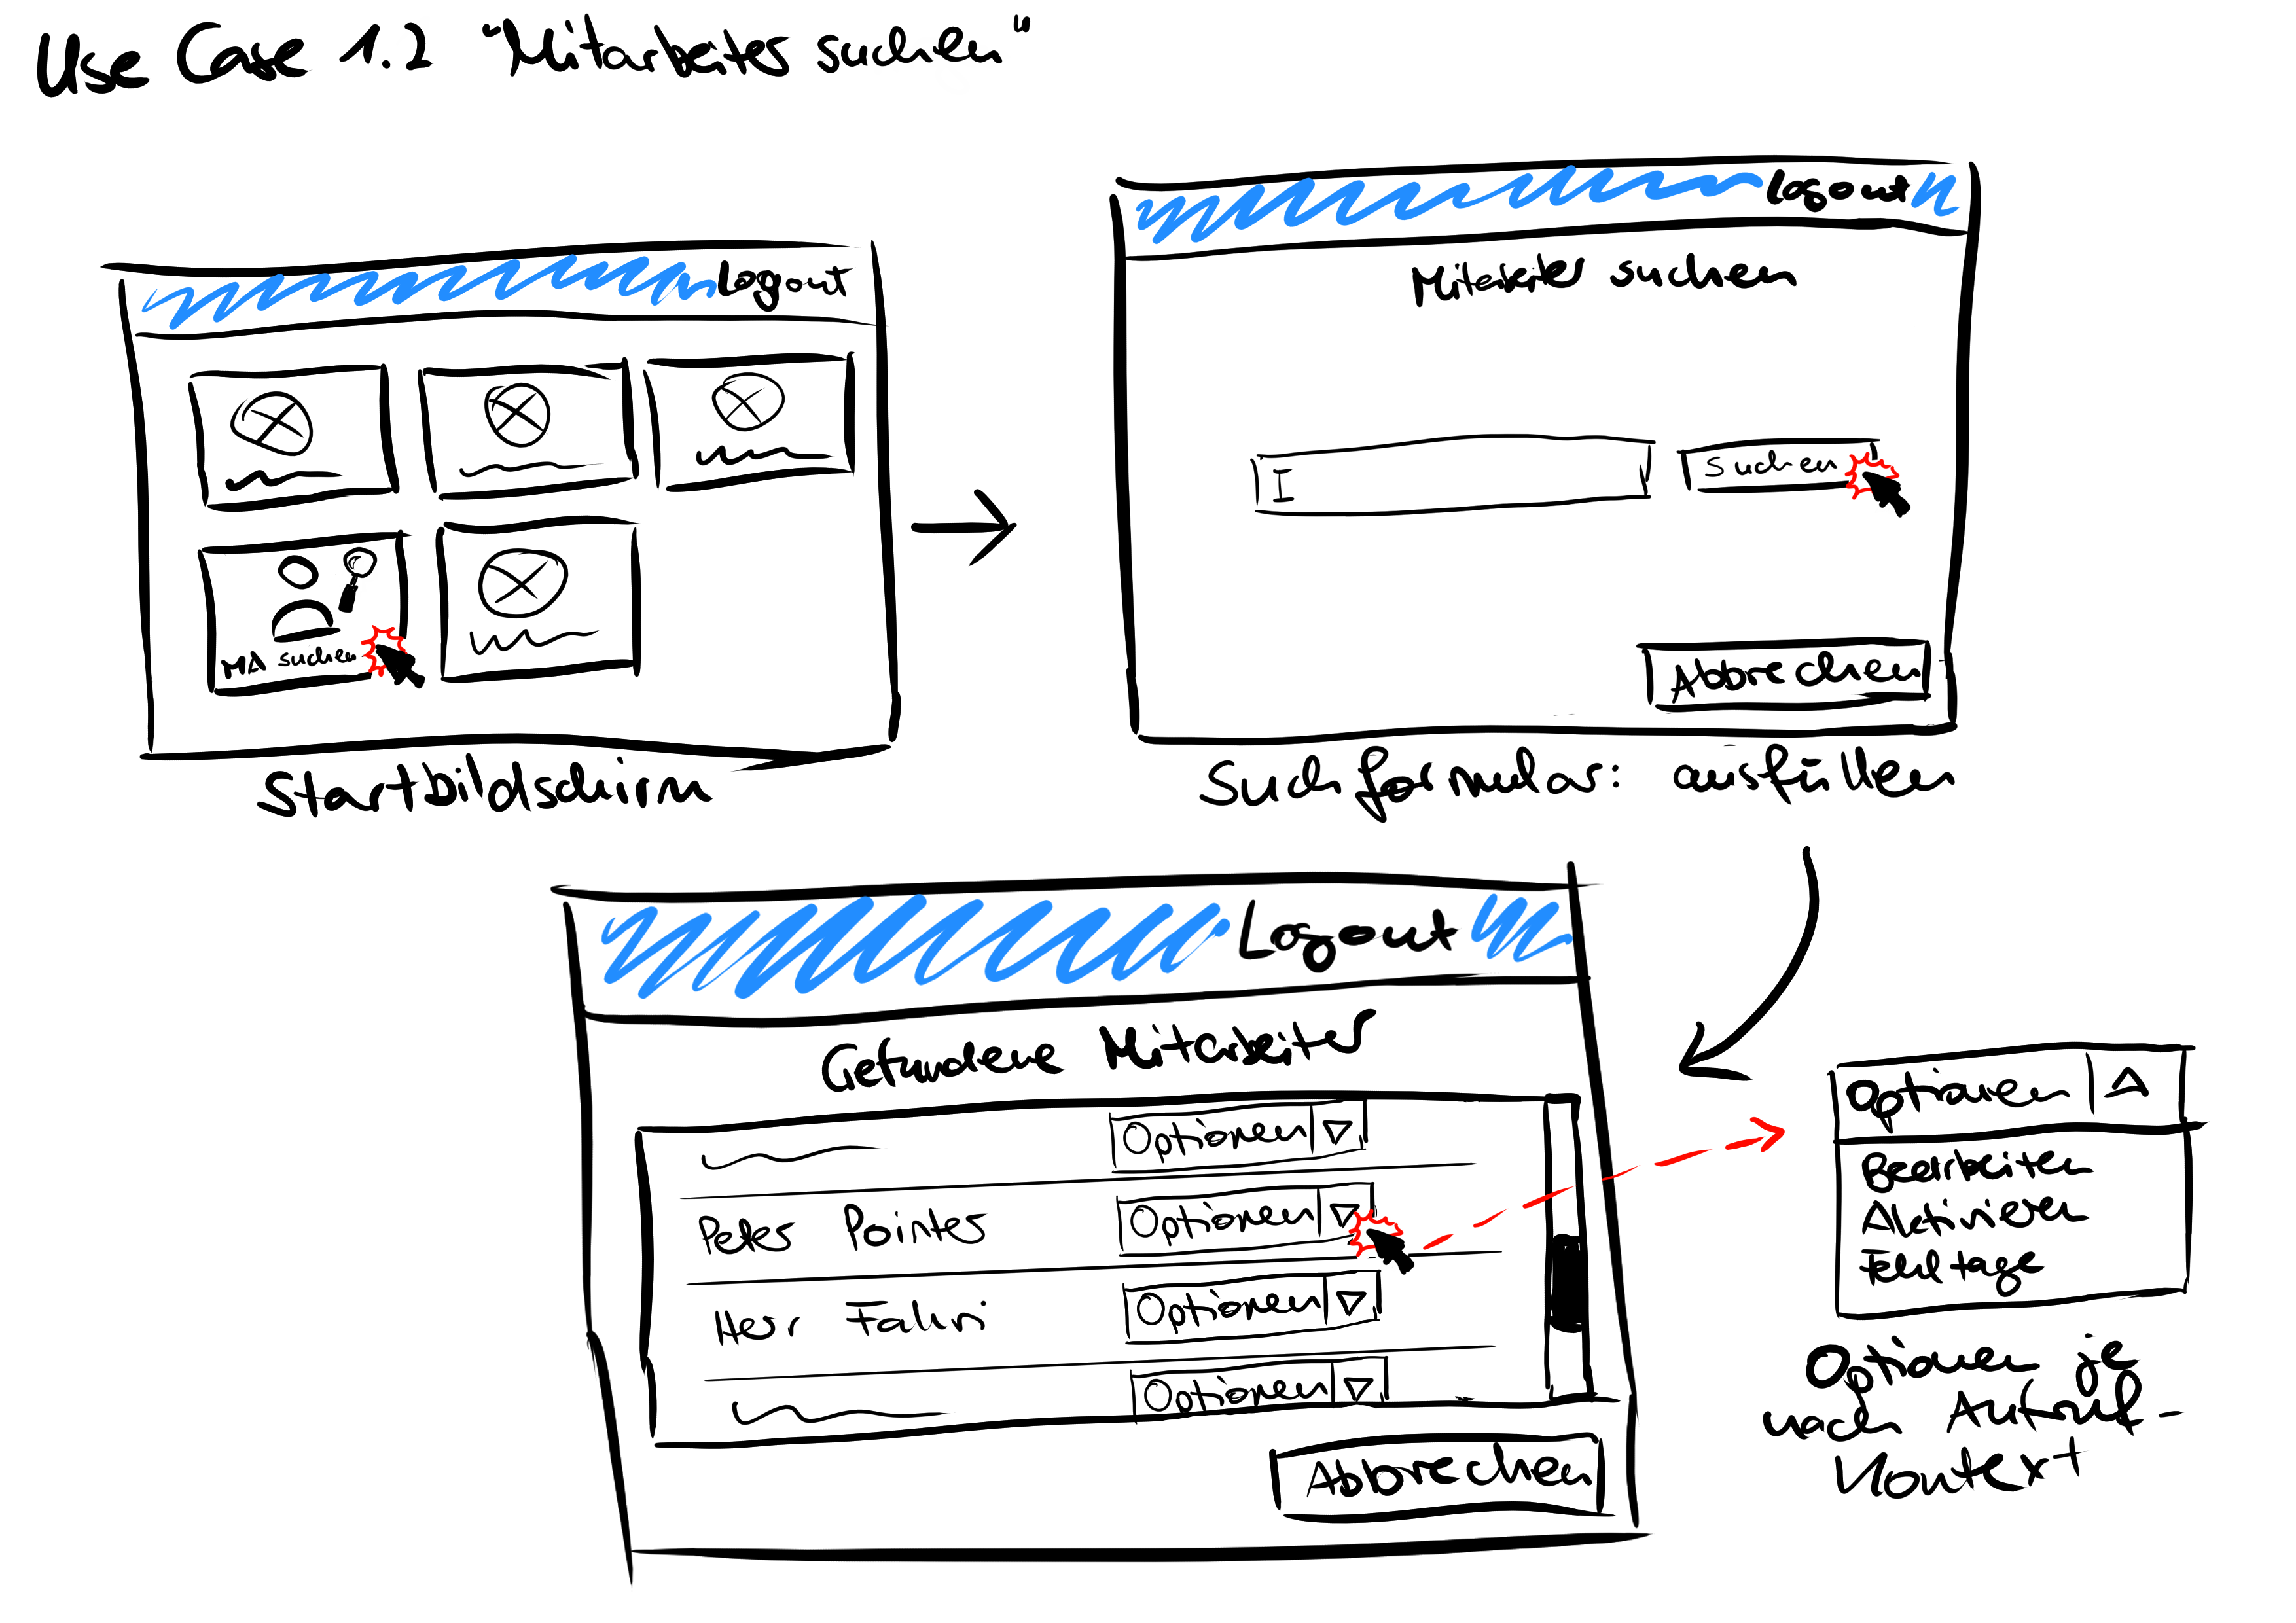 Use Case 1.2 "Mitarbeiter suchen"
Logout
MA suchen
Startbildschirm
Logout
Mitarbeiter suchen
Suchen
Abbrechen
Suchformular: ausfüllen
Logout
Gefundene Mitarbeiter
Optionen
Peter Pointer Optionen
Herr Fahri Optionen
Optionen
Abbrechen
Optionen
Bearbeiten
Aktivieren
Fehltage
Optionen je
nach Aufruf-
Kontext